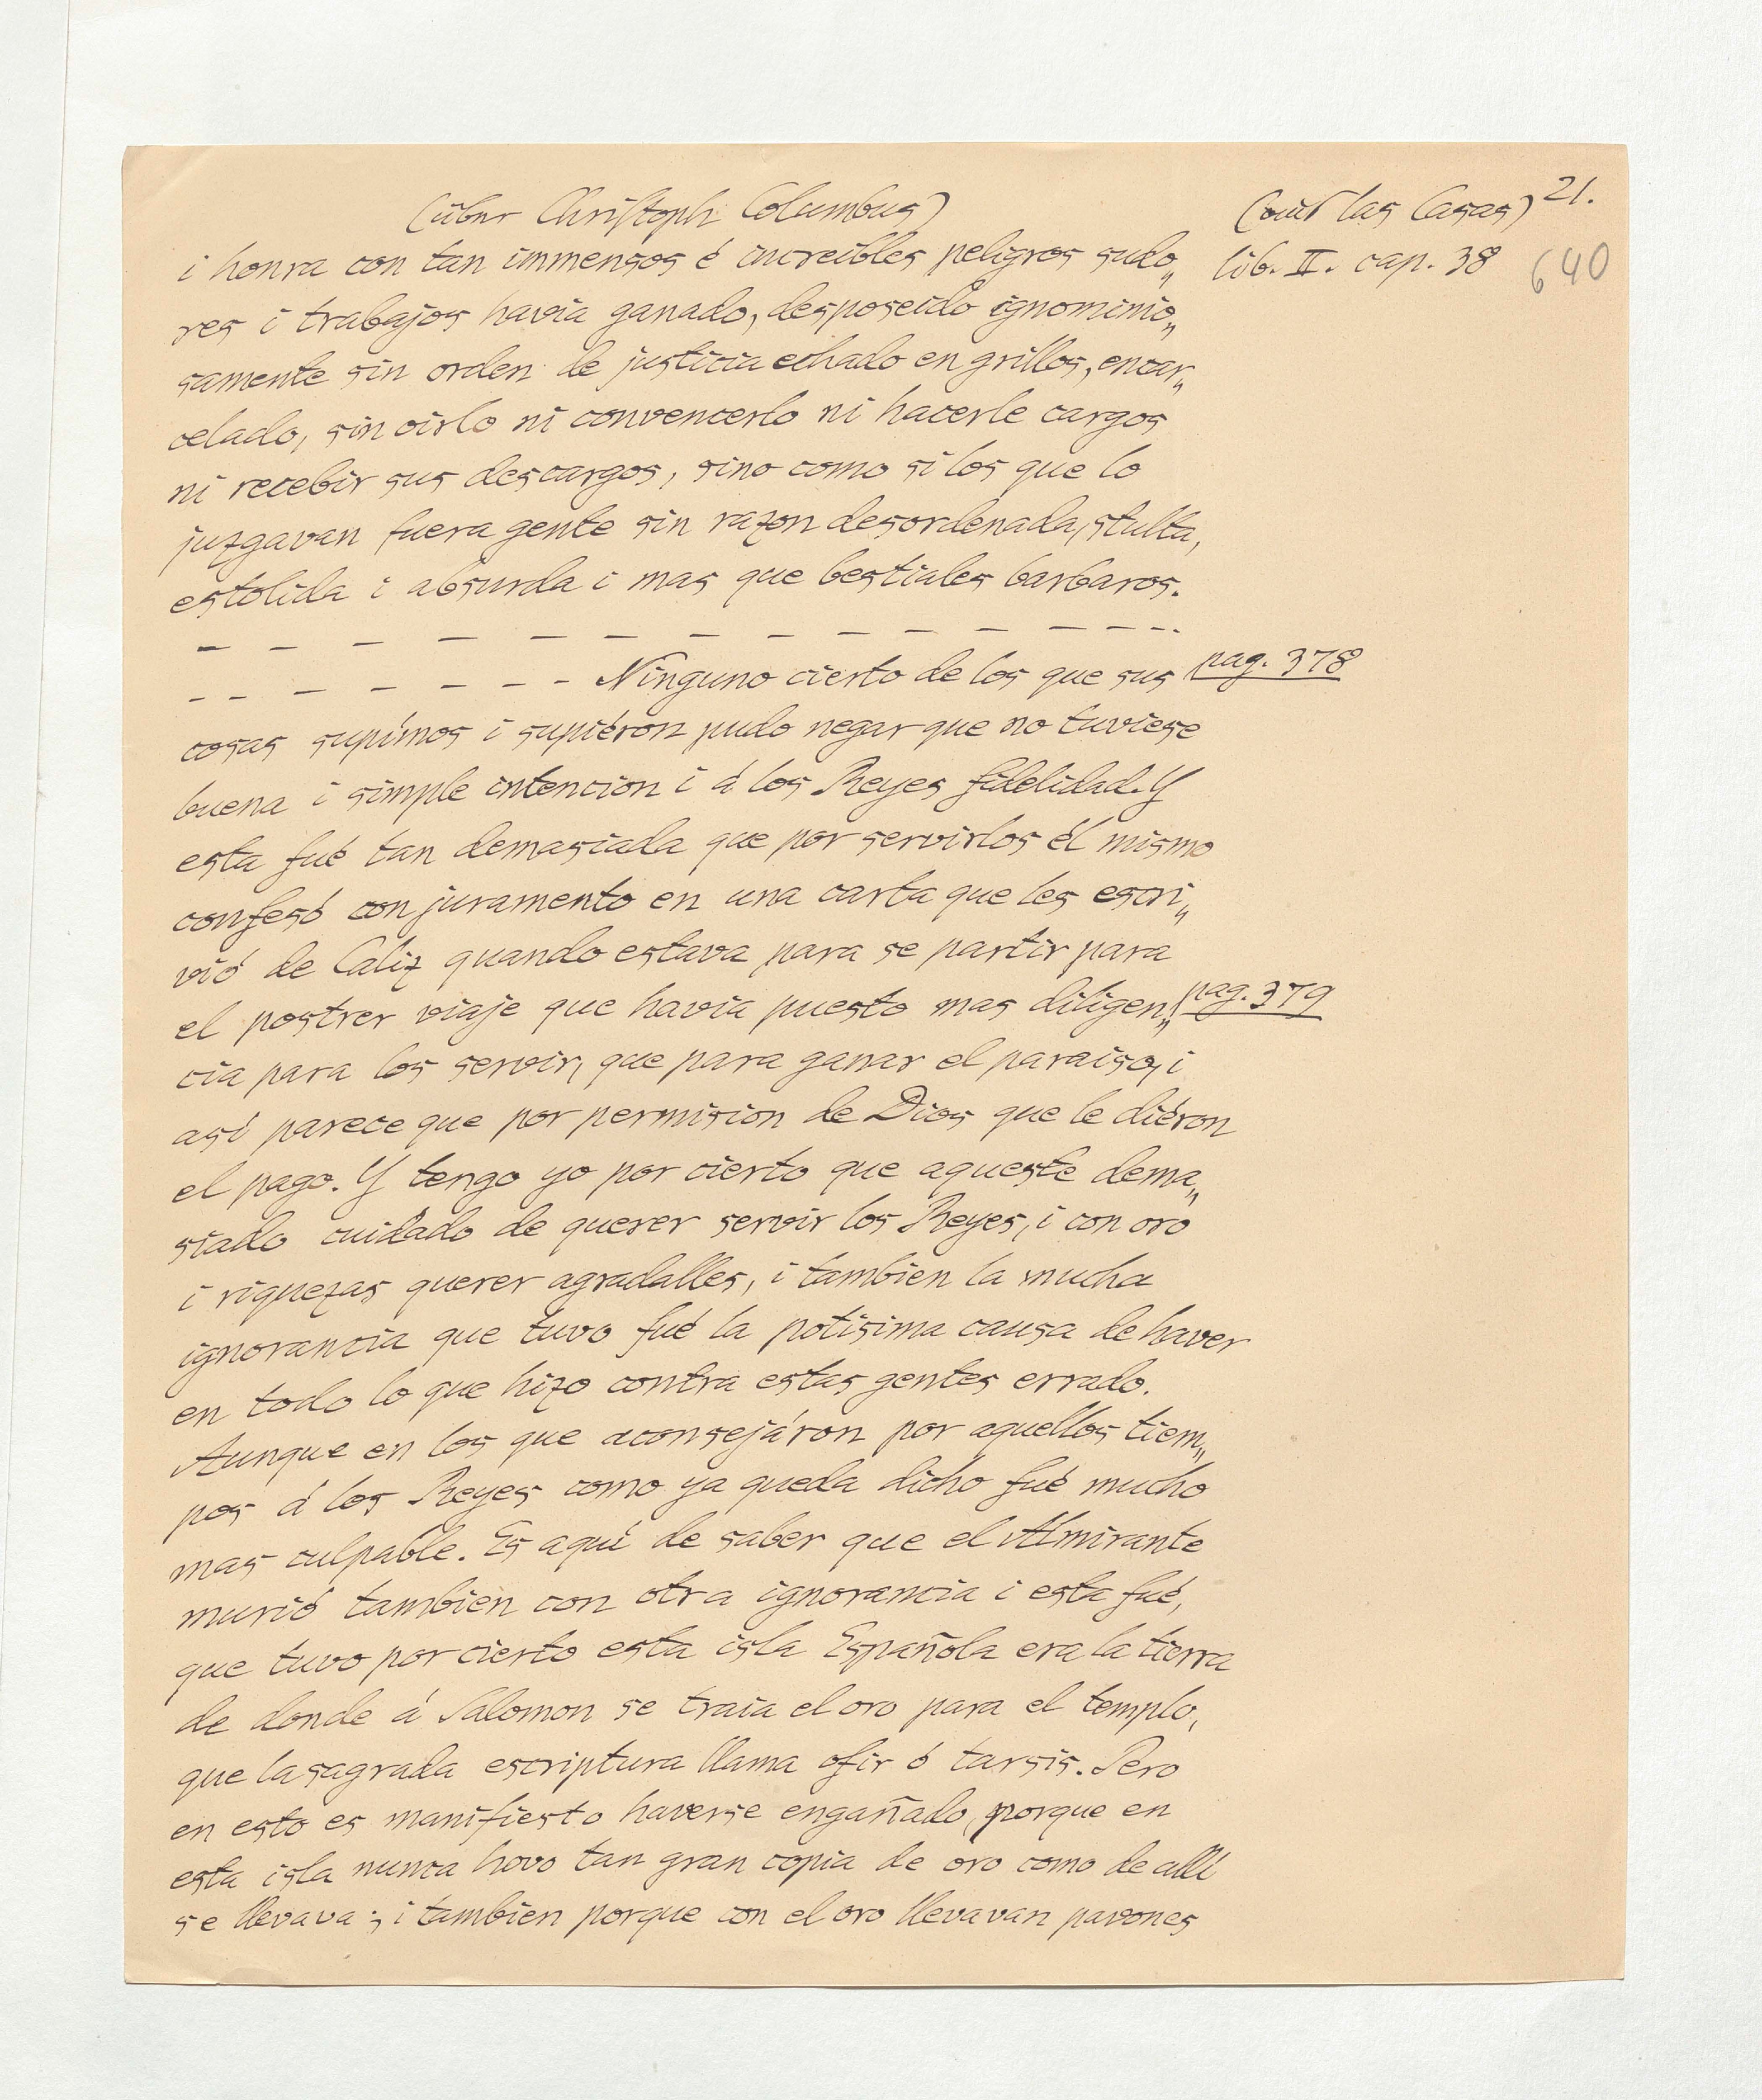 (über Christoph Columbus)
(aus las Casas) 21.
i honra con tan immensos é increibles peligros sudo„
lib. II. cap. 38
640
res i trabajos havia ganado, desposeido ignominio„
samente sin orden de justicia echado en grillos, encar„
celado, sin oirlo ni convencerlo ni hacerle cargos
ni recebir sus descargos, sino como si los que lo
juzgavan fuera gente sin razon desordenada, stulta,
estolida i absurda i mas que bestiales barbaros.
— — — — — — — — — — — — — — -.
— — — — — — - - Ninguno cierto de los que sus
pag. 378
cosas supímos i supiéron pudo negar que no tuviese
buena i simple intencion i á los Reyes fidelidad. Y
esta fué tan demasiada que por servirlos él mismo
confesó con juramento en una carta que les escri„
vió de Caliz quando estava para se partir para
el postrer viaje que havia puesto mas diligen„
pag. 379
cia para los servir, que para ganar el paraiso, i
asi parece que por permision de Dios que le diéron
el pago. Y tengo yo por cierto que aqueste dema„
siado cuidado de querer servir los Reyes, i con oro
i riquezas querer agradalles, i tambien la mucha
ignorancia que tuvo fué la potisima causa de haver
en todo lo que hizo contra estas gentes errado.
Aunque en los que aconsejáron por aquellos tiem„
pos á los Reyes como ya queda dicho fué mucho
mas culpable. Es aquí de saber que el Almirante
murió tambien con otra ignorancia i esta fué,
que tuvo por cierto esta isla Española era la tierra
de donde á Salomon se traia el oro para el templo,
que la sagrada escriptura llama ofir ó tarsis. Pero
en esto es manifiesto haverse engañado, porque en
esta isla nunca hovo tan gran copia de oro como de allí
se llevava; i tambien porque con el oro llevavan pavones